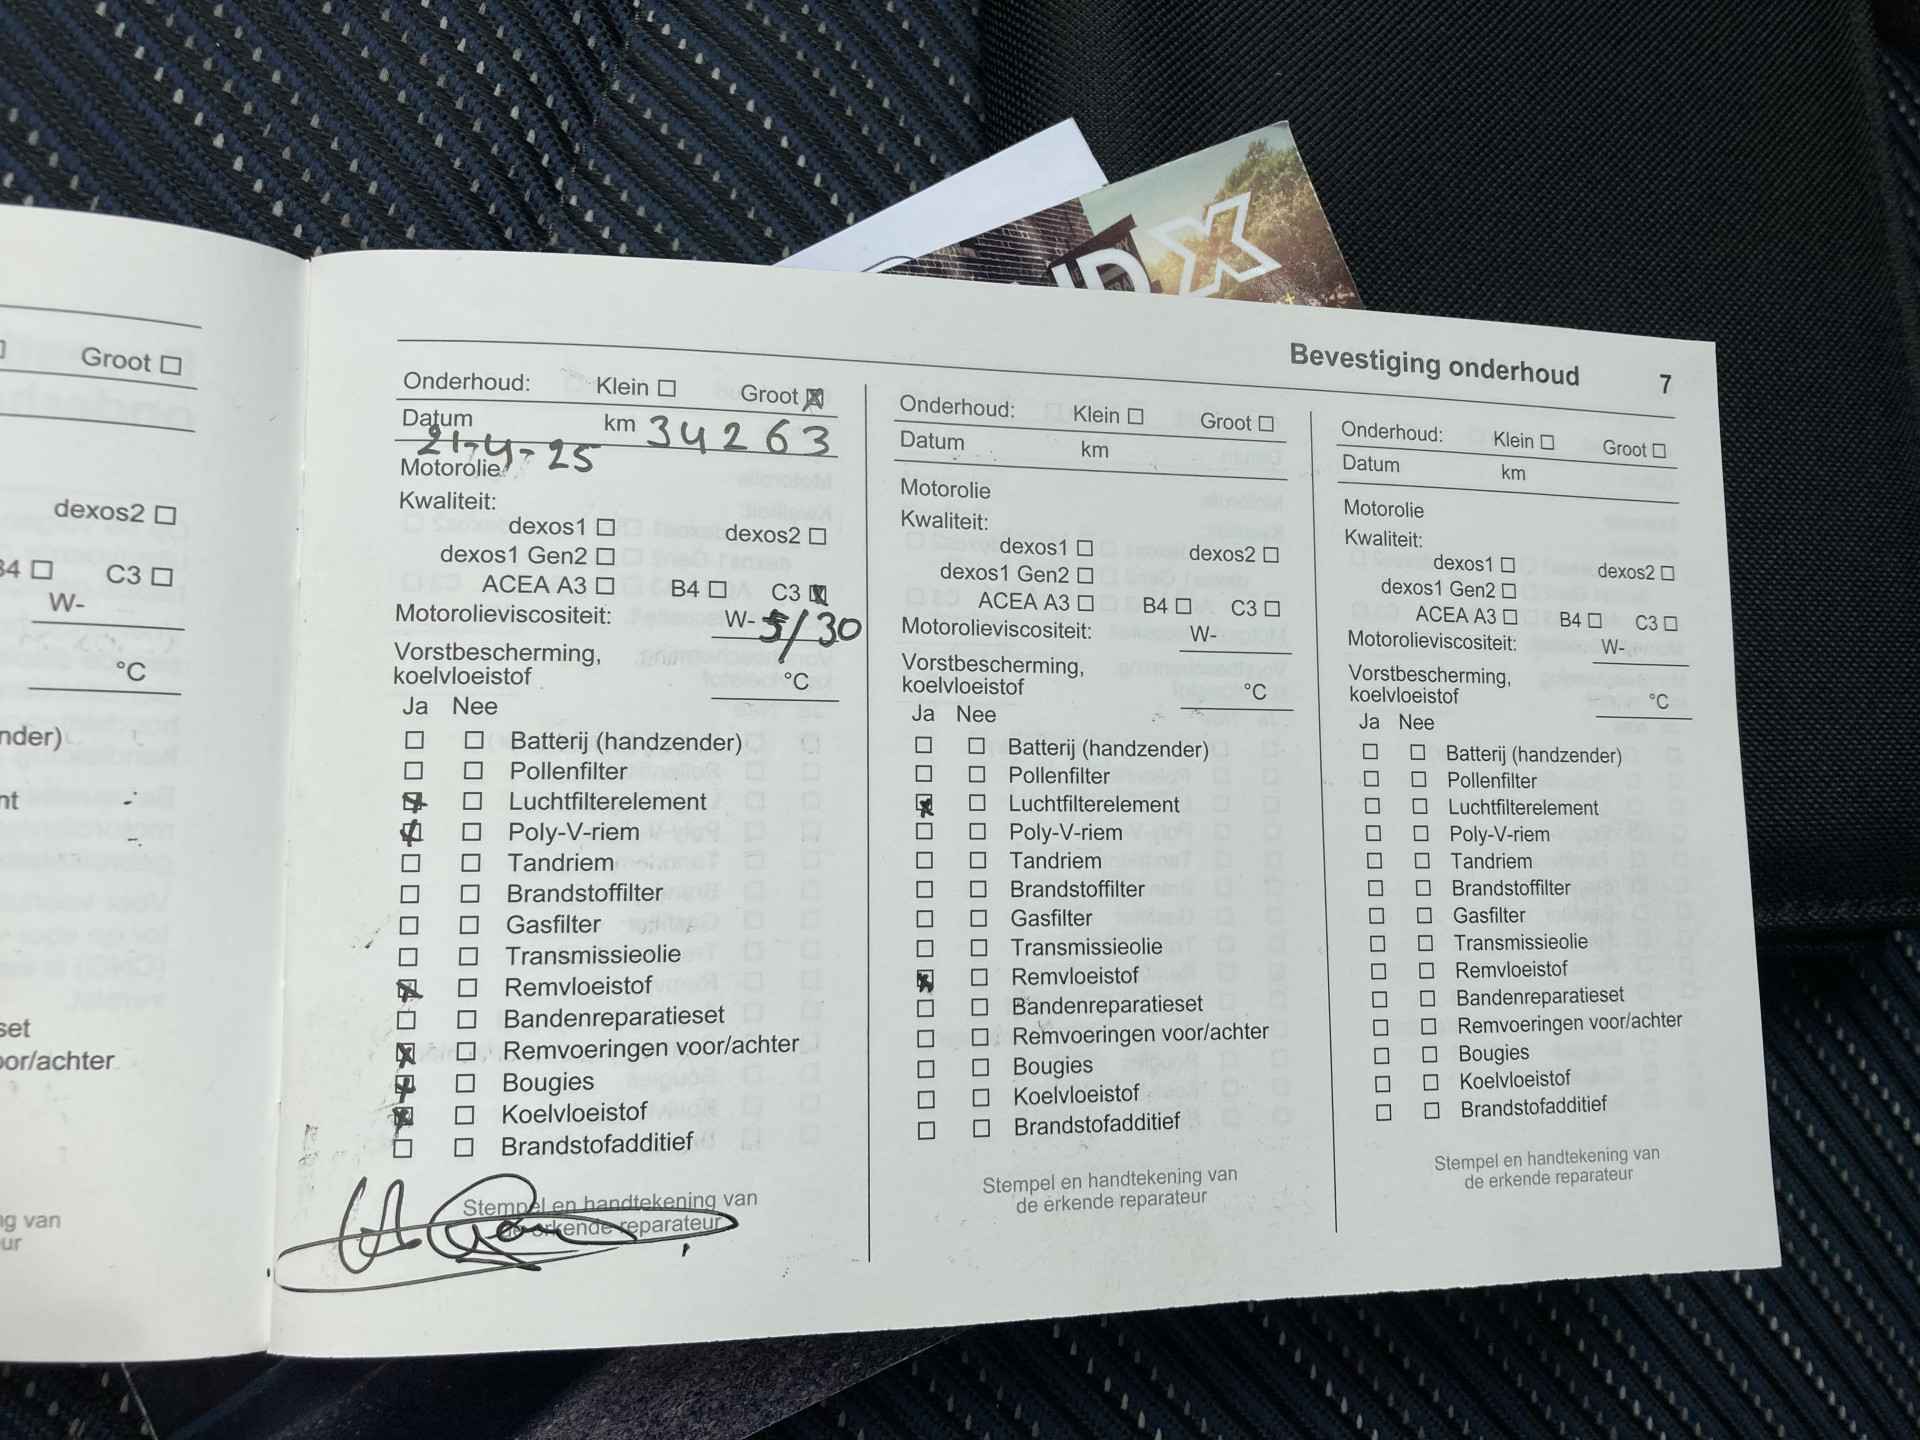 Groot ☐
dexos2 ☐
B4 ☐ C3 ☐
W-
°C
nder)
nt
set
oor/achter
ng van
ur
DX
Bevestiging onderhoud 7
Onderhoud: Klein ☐ Groot ☒
Datum km 34263
21-4-25
Motorolie
Kwaliteit:
dexos1 ☐ dexos2 ☐
dexos1 Gen2 ☐
ACEA A3 ☐ B4 ☐ C3 ☒
Motorolieviscositeit: W- 5/30
Vorstbescherming,
koelvloeistof °C
Ja Nee
☐ ☐ Batterij (handzender)
☐ ☐ Pollenfilter
☒ ☐ Luchtfilterelement
☒ ☐ Poly-V-riem
☐ ☐ Tandriem
☐ ☐ Brandstoffilter
☐ ☐ Gasfilter
☐ ☐ Transmissieolie
☒ ☐ Remvloeistof
☐ ☐ Bandenreparatieset
☒ ☐ Remvoeringen voor/achter
☒ ☐ Bougies
☒ ☐ Koelvloeistof
☐ ☐ Brandstofadditief
Stempel en handtekening van
de erkende reparateur
Onderhoud: Klein ☐ Groot ☐
Datum km
Motorolie
Kwaliteit:
dexos1 ☐ dexos2 ☐
dexos1 Gen2 ☐
ACEA A3 ☐ B4 ☐ C3 ☐
Motorolieviscositeit: W-
Vorstbescherming,
koelvloeistof °C
Ja Nee
☐ ☐ Batterij (handzender)
☐ ☐ Pollenfilter
☒ ☐ Luchtfilterelement
☐ ☐ Poly-V-riem
☐ ☐ Tandriem
☐ ☐ Brandstoffilter
☐ ☐ Gasfilter
☐ ☐ Transmissieolie
☒ ☐ Remvloeistof
☐ ☐ Bandenreparatieset
☐ ☐ Remvoeringen voor/achter
☐ ☐ Bougies
☐ ☐ Koelvloeistof
☐ ☐ Brandstofadditief
Stempel en handtekening van
de erkende reparateur
Onderhoud: Klein ☐ Groot ☐
Datum km
Motorolie
Kwaliteit:
dexos1 ☐ dexos2 ☐
dexos1 Gen2 ☐
ACEA A3 ☐ B4 ☐ C3 ☐
Motorolieviscositeit: W-
Vorstbescherming,
koelvloeistof °C
Ja Nee
☐ ☐ Batterij (handzender)
☐ ☐ Pollenfilter
☐ ☐ Luchtfilterelement
☐ ☐ Poly-V-riem
☐ ☐ Tandriem
☐ ☐ Brandstoffilter
☐ ☐ Gasfilter
☐ ☐ Transmissieolie
☐ ☐ Remvloeistof
☐ ☐ Bandenreparatieset
☐ ☐ Remvoeringen voor/achter
☐ ☐ Bougies
☐ ☐ Koelvloeistof
☐ ☐ Brandstofadditief
Stempel en handtekening van
de erkende reparateur